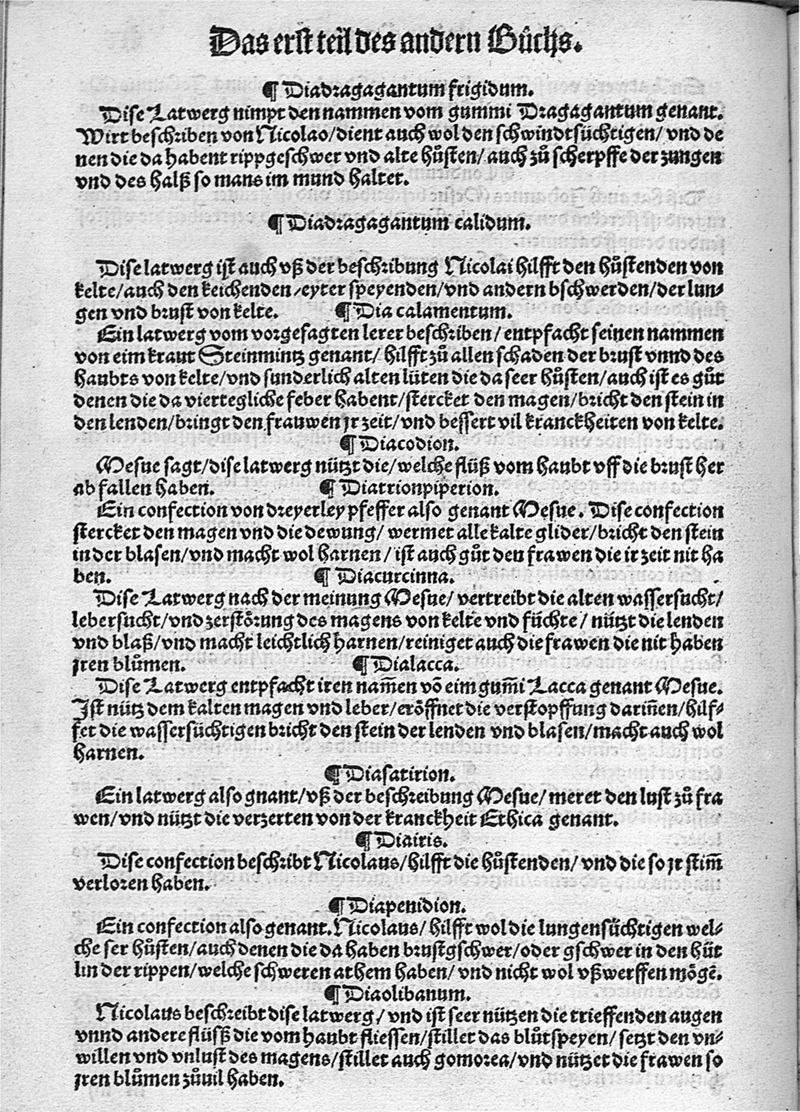 Das erst teil des andern Bůchs.
¶ Diadragagantum frigidum.
Dise Latwerg nimpt den nammen vom gummi Dragagantum genant.
Wirt beschriben von Nicolao/dient auch wol den schwindtsüchtigen/ vnd de
nen die da habent rippgeschwer vnd alte hůsten/ auch zů scherpffe der zungen
vnd des halß so mans im mund haltet.
¶ Diadragagantum calidum.
Dise latwerg ist auch vß der beschribung Nicolai hilfft den hůstenden von
kelte/auch den keichenden/eyter speyenden/vnd andern bschwerden/der lun-
gen vnd brust von kelte. ¶ Dia calamentum.
Ein latwerg vom vorgesagten lerer beschriben/ entpfacht seinen nammen
von eim kraut Steinmintz genant/ hilfft zů allen schaden der brust vnnd des
haubts von kelte/vnd sunderlich alten lüten die da seer hůsten/auch ist es gůt
denen die da viertegliche feber habent/stercket den magen/bricht den stein in
den lenden/bringt den frauwen jr zeit/vnd bessert vil kranckheiten von kelte.
¶ Diacodion.
Mesue sagt/dise latwerg nützt die/welche flüß vom haubt vff die brust her
ab fallen haben. ¶ Diatrionpiperion.
Ein confection von dreyerley pfeffer also genant Mesue. Dise confection
stercket den magen vnd die dewung/ wermet alle kalte glider/bricht den stein
in der blasen/vnd macht wol harnen/ ist auch gůt den frawen die ir zeit nit ha
ben. ¶ Diacurcinna.
Dise Latwerg nach der meinung Mesue/ vertreibt die alten wassersucht/
lebersucht/vnd zerstörung des magens von kelte vnd füchte/ nützt die lenden
vnd blaß/vnd macht leichtlich harnen/reiniget auch die frawen die nit haben
jren blůmen. ¶ Dialacca.
Dise Latwerg entpfacht iren nam̄en võ eim gum̄i Lacca genant Mesue.
Ist nütz dem kalten magen vnd leber/eröffnet die verstopffung darin̄en/hilf-
fet die wassersüchtigen bricht den stein der lenden vnd blasen/macht auch wol
harnen.
¶ Diasatirion.
Ein latwerg also gnant/vß der beschreibung Mesue/meret den lust zů fra
wen/vnd nützt die verzerten von der kranckheit Ethica genant.
¶ Diairis.
Dise confection beschribt Nicolaus/hilfft die hůstenden/ vnd die so jr stim̄
verloren haben.
¶ Diapenidion.
Ein confection also genant. Nicolaus/ hilfft wol die lungensüchtigen wel-
che ser hůsten/auch denen die da haben brustgschwer/oder gschwer in den hüt
lin der rippen/welche schweren athem haben/ vnd nicht wol vßwerffen mögē.
¶ Diaolibanum.
Nicolaus beschreibt dise latwerg/ vnd ist seer nützen die trieffenden augen
vnnd andere flüsß die vom haubt fliessen/stillet das blůtspeyen/ setzt den vn-
willen vnd vnlust des magens/stillet auch gomorea/vnd nützet die frawen so
jren blůmen zůuil haben.